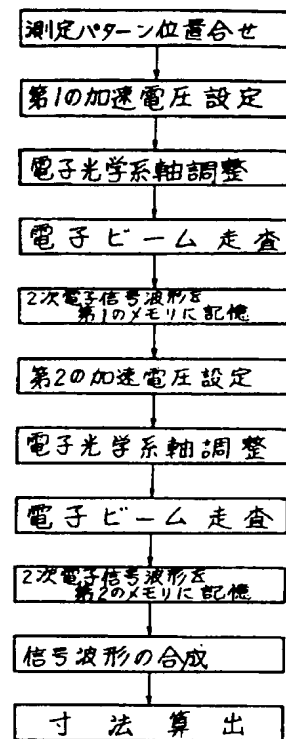 測定パターン位置合せ
第1の加速電圧設定
電子光学系軸調整
電子ビーム走査
2次電子信号波形を
第1のメモリに記憶
第2の加速電圧設定
電子光学系軸調整
電子ビーム走査
2次電子信号波形を
第2のメモリに記憶
信号波形の合成
寸法算出